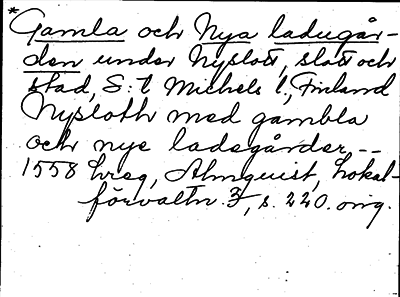 *Gamla och Nya ladugår-
den under Nyslott, slott och
stad, S:t Michels l., Finland
Nysloth med gambla
och nye ladegårder, --
1558 hreg, Almquist, Lokal-
förvaltn. 3, s. 220. orig.